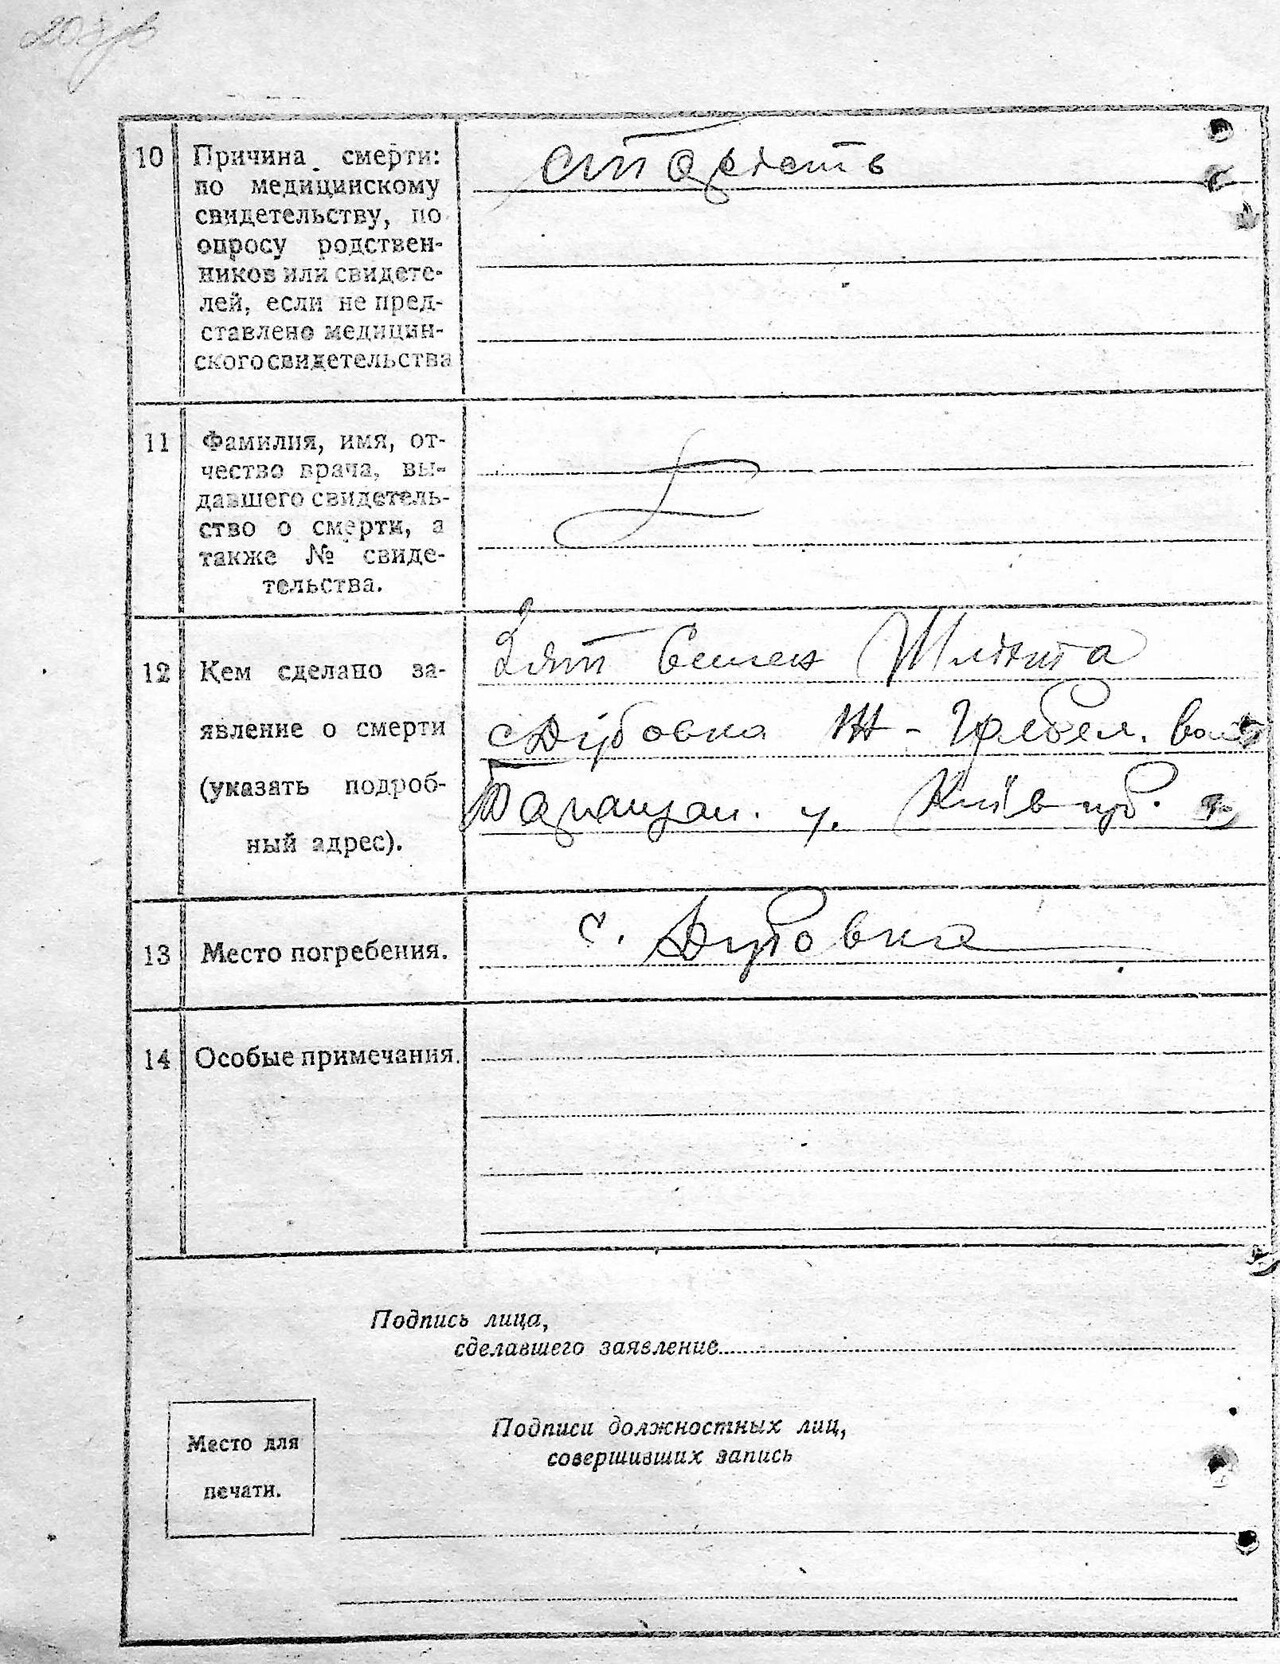 20 зв
10 Причина смерти:
по медицинскому
свидетельству, по
опросу родствен-
ников или свидете-
лей, если не пред-
ставлено медицин-
ского свидетельства
старість
11 Фамилия, имя, от-
чество врача, вы-
давшего свидетель-
ство о смерти, а
также № свиде-
тельства.
12 Кем сделано за-
явление о смерти
(указать подроб-
ный адрес).
Зят Семен
с Дубовка Ж-Гребел. вол
Таращан. у. Київ губ.
13 Место погребения.
с. Дубовка
14 Особые примечания.
Подпись лица,
сделавшего заявление
Место для
печати.
Подписи должностных лиц,
совершивших запись